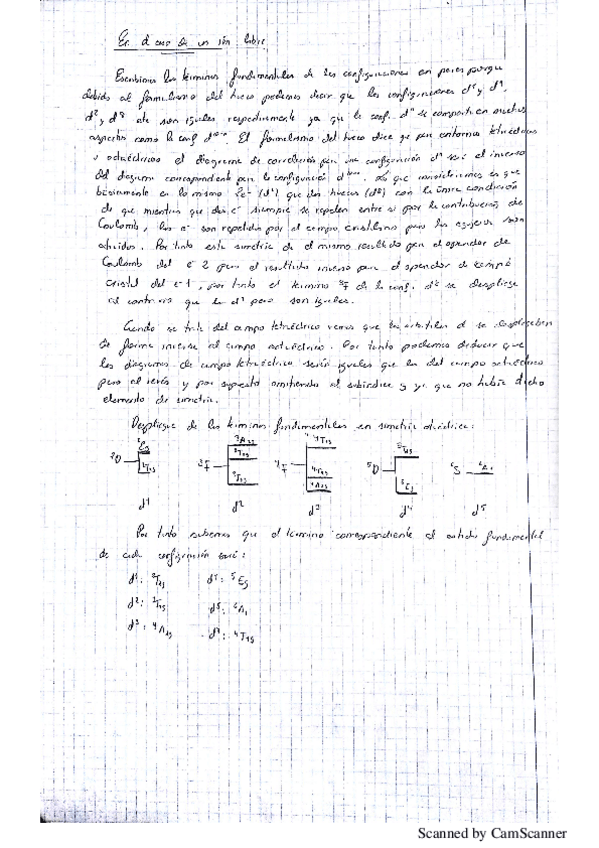 En el caso de un ión libre
Escribimos los términos fundamentales de las configuraciones en pares porque
debido al formulismo del hueco podemos decir que las configuraciones d¹ y d⁹,
d² y d⁸ etc son iguales respectivamente ya que la conf. dⁿ se comporta en muchos
aspectos como la conf d¹⁰⁻ⁿ. El formulismo del hueco dice que para entornos tetraédricos
u octaédricos el diagrama de correlación para una configuración dⁿ será el inverso
del diagrama correspondiente para la configuración d¹⁰⁻ⁿ. Lo que consideramos es que
básicamente es lo mismo 2e⁻ (d²) que dos huecos (d⁸) con la única condición
de que mientras que dos e⁻ siempre se repelen entre sí por la contribución de
Coulomb, los e⁻ son repelidos por el campo cristalino pero los agujeros son
atraídos. Por tanto esta simetría da el mismo resultado para el operador de
Coulomb del e⁻ 2 pero el resultado inverso para el operador de campo
cristal del e⁻ 1, por tanto el término ³F de la conf. d⁸ se despliega
al contrario que la d² pero son iguales.
Cuando se trata del campo tetraédrico vemos que los orbitales d se desplieguen
de forma inversa al campo octaédrico. Por tanto podemos deducir que
los diagramas de campo tetraédrico serán iguales que los del campo octaédrico
pero al revés y por supuesto omitiendo el subíndice g ya que no había dicho
elemento de simetría.
Despliegue de los términos fundamentales en simetría octaédrica:
²Eg ³A2g ⁴T1g ⁵T2g
²D ³T2g ³F ⁴F ⁴T2g ⁵D ⁶S ⁶A1
²T2g ³T1g ⁴A2g ⁵Eg
d¹ d² d³ d⁴ d⁵
Por tanto sabemos que el término correspondiente al estado fundamental
de cada configuración será:
d¹: ²T2g d⁴: ⁵Eg
d²: ³T1g d⁵: ⁶A1
d³: ⁴A2g d⁷: ⁴T1g
Scanned by CamScanner